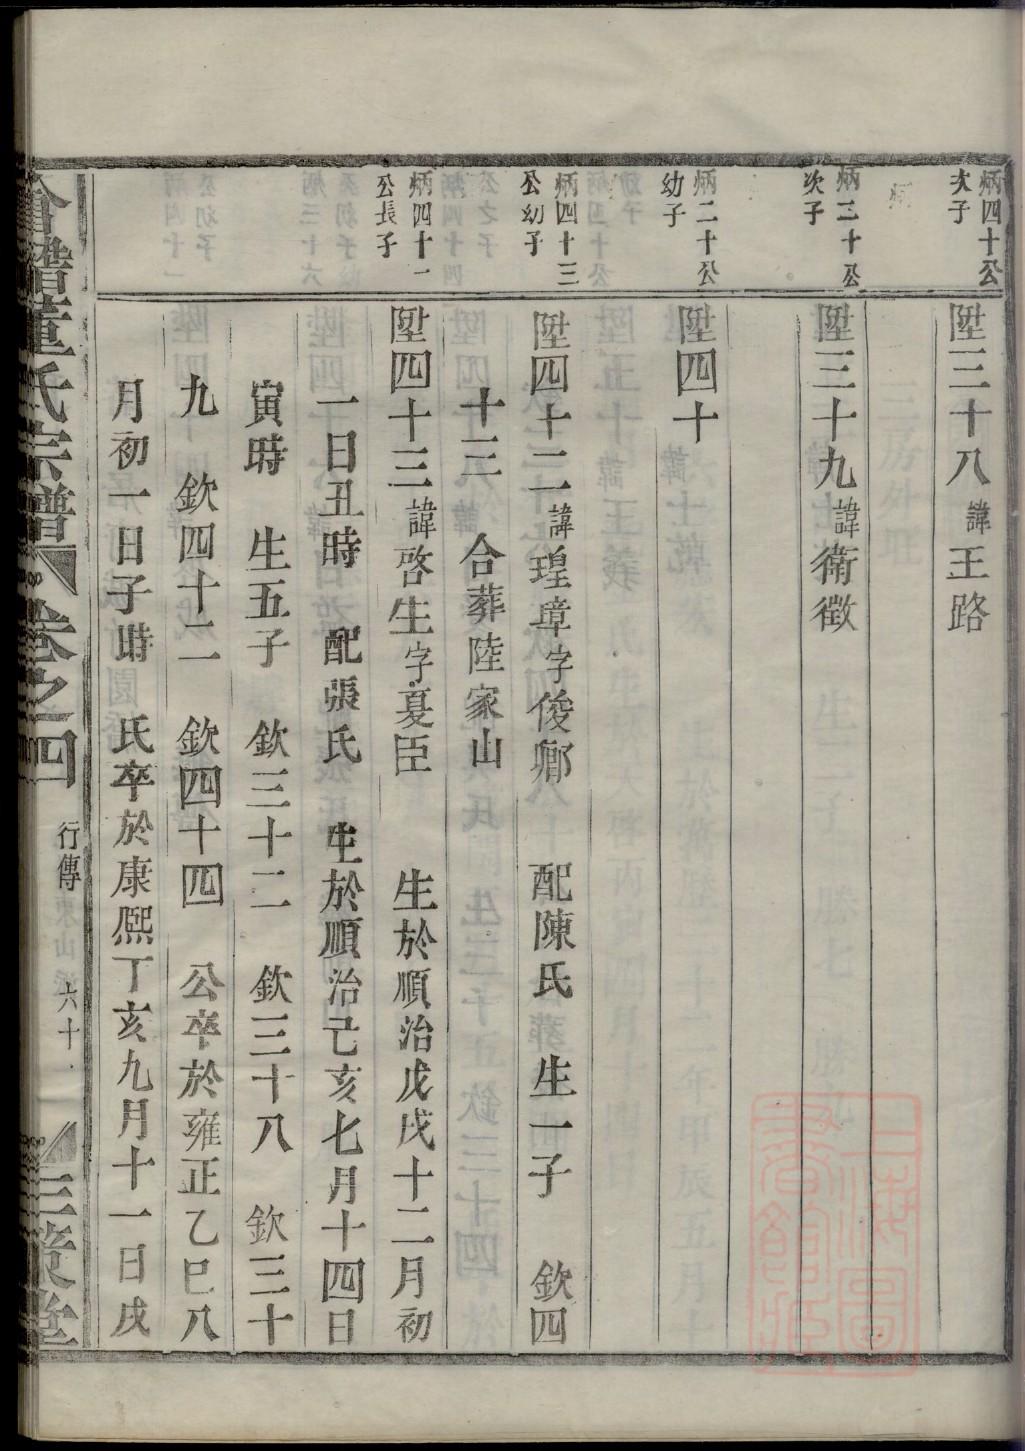 炳四十公
次子
陞三十八諱王路
炳二十公
次子
陞三十九諱衛徵
炳二十公
幼子
陞四十
炳四十三
公幼子
陞四十二諱瑝章字俊卿 配陳氏 生一子 欽四
十三 合葬陸家山
炳四十一
公長子
陞四十三諱啓生字夏臣 生於順治戊戌十二月初
一日丑時 配張氏 生於順治己亥七月十四日
寅時 生五子 欽三十二 欽三十八 欽三十
九 欽四十二 欽四十四 公卒於雍正乙巳八
月初一日子時 氏卒於康熙丁亥九月十一日戌
會稽董氏宗譜 卷之四 行傳 東山 六十 三策堂
上海圖書館藏